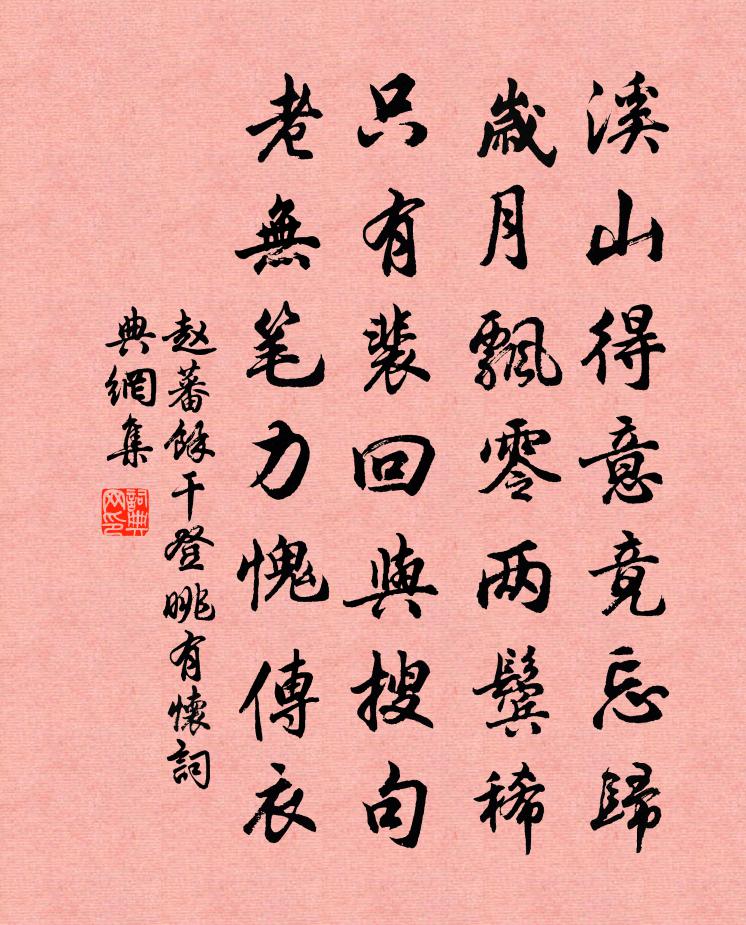 溪山得意竟忘歸
歲月飄零两鬓稀
只有裴回與搜句
老無笔力愧傳衣
赵蕃餘干登眺有懷詞
典網集
詞典
网印